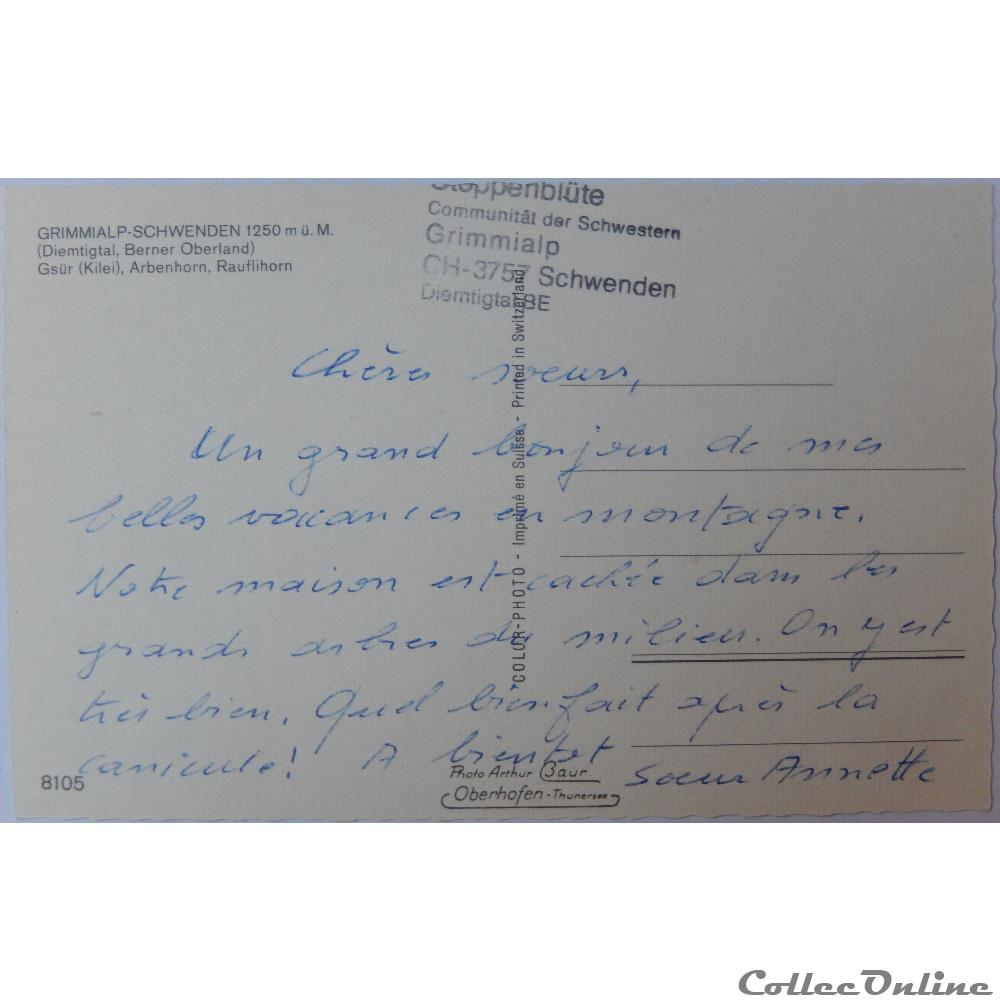 Steppenblüte
Communität der Schwestern
Grimmialp
CH-3757 Schwenden
Diemtigtal BE
GRIMMIALP-SCHWENDEN 1250 m ü. M.
(Diemtigtal, Berner Oberland)
Gsür (Kilei), Arbenhorn, Rauflihorn
Chères soeurs,
Un grand bonjour de mes
belles vacances en montagne.
Notre maison est cachée dans les
grands arbres du milieu. On y est
très bien. Quel bienfait après la
canicule! A bientôt
Soeur Annette
COLOR-PHOTO - Imprimé en Suisse - Printed in Switzerland
8105
Photo Arthur Baur
Oberhofen - Thunersee
CollecOnline